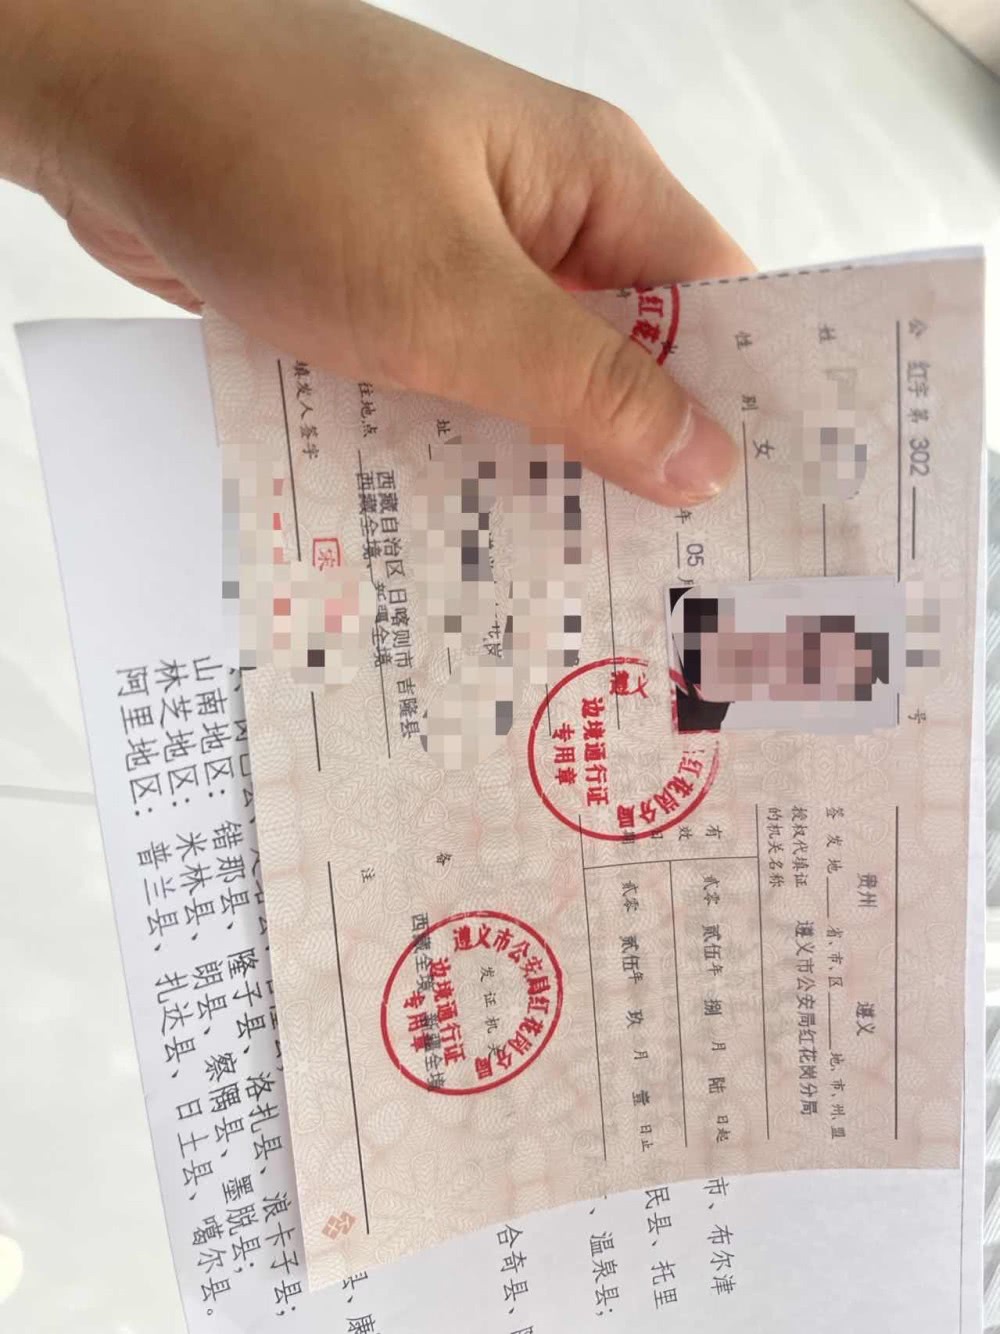 公 红字第 302 号
姓
性别 女
年 05 月
址
往地点 西藏自治区 日喀则市 吉隆县
西藏全境、新疆全境
填发人签字
宋
红花
边境通行证
专用章
红花岗分局
贵州 遵义
签发地 省、市、区 地、市、州、盟
授权代填证
的机关名称 遵义市公安局红花岗分局
有效
贰零 贰伍年 捌 月 陆 日起
期
贰零 贰伍年 玖 月 壹 日止
备
注
西藏全境 新疆全境
遵义市公安局红花岗分局
发证机关
边境通行证
专用章
市、布尔津
民县、托里
、温泉县;
合奇县、
县、
山南地区: 错那县、隆子县、洛扎县、浪卡子县;
林芝地区: 米林县、朗县、察隅县、墨脱县;
阿里地区: 普兰县、扎达县、日土县、噶尔县。